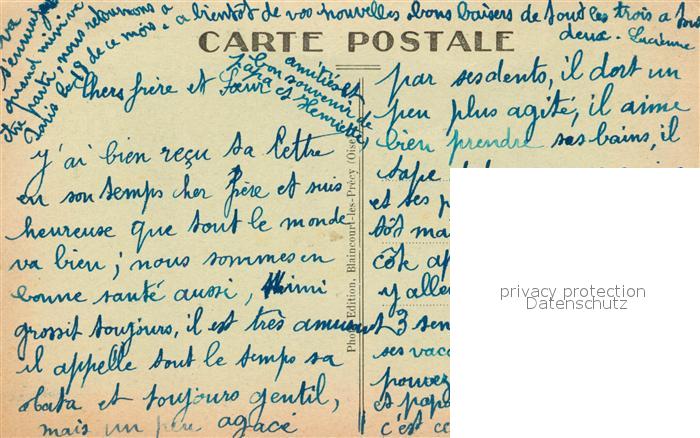 a bientot de vos nouvelles bons baisers de tout les trois a tous
deux. Lucienne
CARTE POSTALE
va
s'ennuyer
quand mimi va
être parti, nous retournons a
Paris le 19 de ce mois.
amitiés et
bon souvenir de
papa et Henriette
Chers frère et Sœur
j'ai bien reçu ta lettre
en son temps cher frère et suis
heureuse que tout le monde
va bien ; nous sommes en
bonne santé aussi, Mimi
grossit toujours, il est très amusant
il appelle tout le temps sa
et toujours gentil,
mais un peu agacé
Photo-Edition, Blaincourt-les-Précy (Oise)
par ses dents, il dort un
peu plus agité, il aime
bien prendre ses bains, il
tape
et ses p
tôt mai
côté ap
y aller
3 sem
ses vaca
pouvez
et papa
c'est ce
privacy protection
Datenschutz